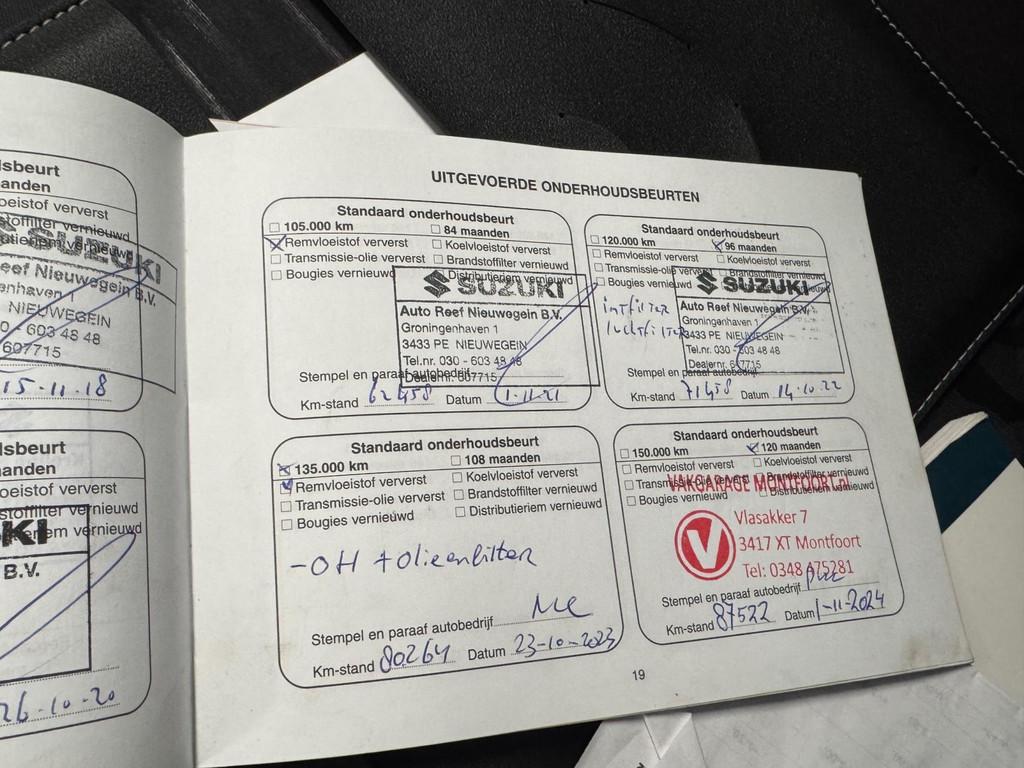 dsbeurt
aanden
oeistof ververst
stoffilter vernieuwd
utieriem vernieuwd
SUZUKI
eef Nieuwegein B.V.
enhaven 1
NIEUWEGEIN
0 - 603 48 48
607715
15-11-18
dsbeurt
aanden
oeistof ververst
toffilter vernieuwd
tieriem vernieuwd
KI
B.V.
26-10-20
UITGEVOERDE ONDERHOUDSBEURTEN
Standaard onderhoudsbeurt
105.000 km 84 maanden
Remvloeistof ververst Koelvloeistof ververst
Transmissie-olie ververst Brandstoffilter vernieuwd
Bougies vernieuwd Distributieriem vernieuwd
SUZUKI
Auto Reef Nieuwegein B.V.
Groningenhaven 1
3433 PE NIEUWEGEIN
Tel.nr. 030 - 603 48 48
Dealernr. 607715
Stempel en paraaf autobedrijf
Km-stand 62458 Datum 1-11-21
Standaard onderhoudsbeurt
120.000 km 96 maanden
Remvloeistof ververst Koelvloeistof ververst
Transmissie-olie ververst Brandstoffilter vernieuwd
Bougies vernieuwd
SUZUKI
intfilter
luchtfilter
Auto Reef Nieuwegein B.V.
Groningenhaven 1
3433 PE NIEUWEGEIN
Tel.nr. 030 - 603 48 48
Dealernr. 607715
Stempel en paraaf autobedrijf
Km-stand 71458 Datum 14-10-22
Standaard onderhoudsbeurt
135.000 km 108 maanden
Remvloeistof ververst Koelvloeistof ververst
Transmissie-olie ververst Brandstoffilter vernieuwd
Bougies vernieuwd Distributieriem vernieuwd
-OH + olieenfilter
Stempel en paraaf autobedrijf
Km-stand 80264 Datum 23-10-2023
Standaard onderhoudsbeurt
150.000 km 120 maanden
Remvloeistof ververst Koelvloeistof ververst
Transmissie-olie ververst Brandstoffilter vernieuwd
Bougies vernieuwd Distributieriem vernieuwd
VAKGARAGE MONTFOORT.nl
Vlasakker 7
3417 XT Montfoort
Tel: 0348 475281
Stempel en paraaf autobedrijf
Km-stand 87522 Datum 1-11-2024
19